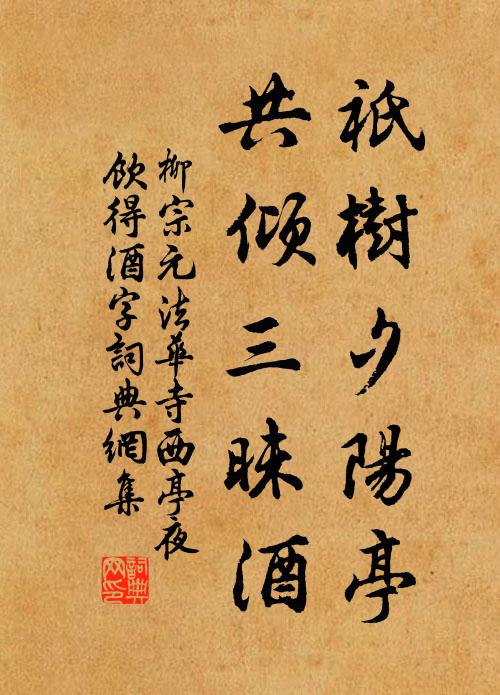 祇樹夕陽亭
共傾三昧酒
柳宗元法華寺西亭夜
飲得酒字詞典網集
詞典
网印